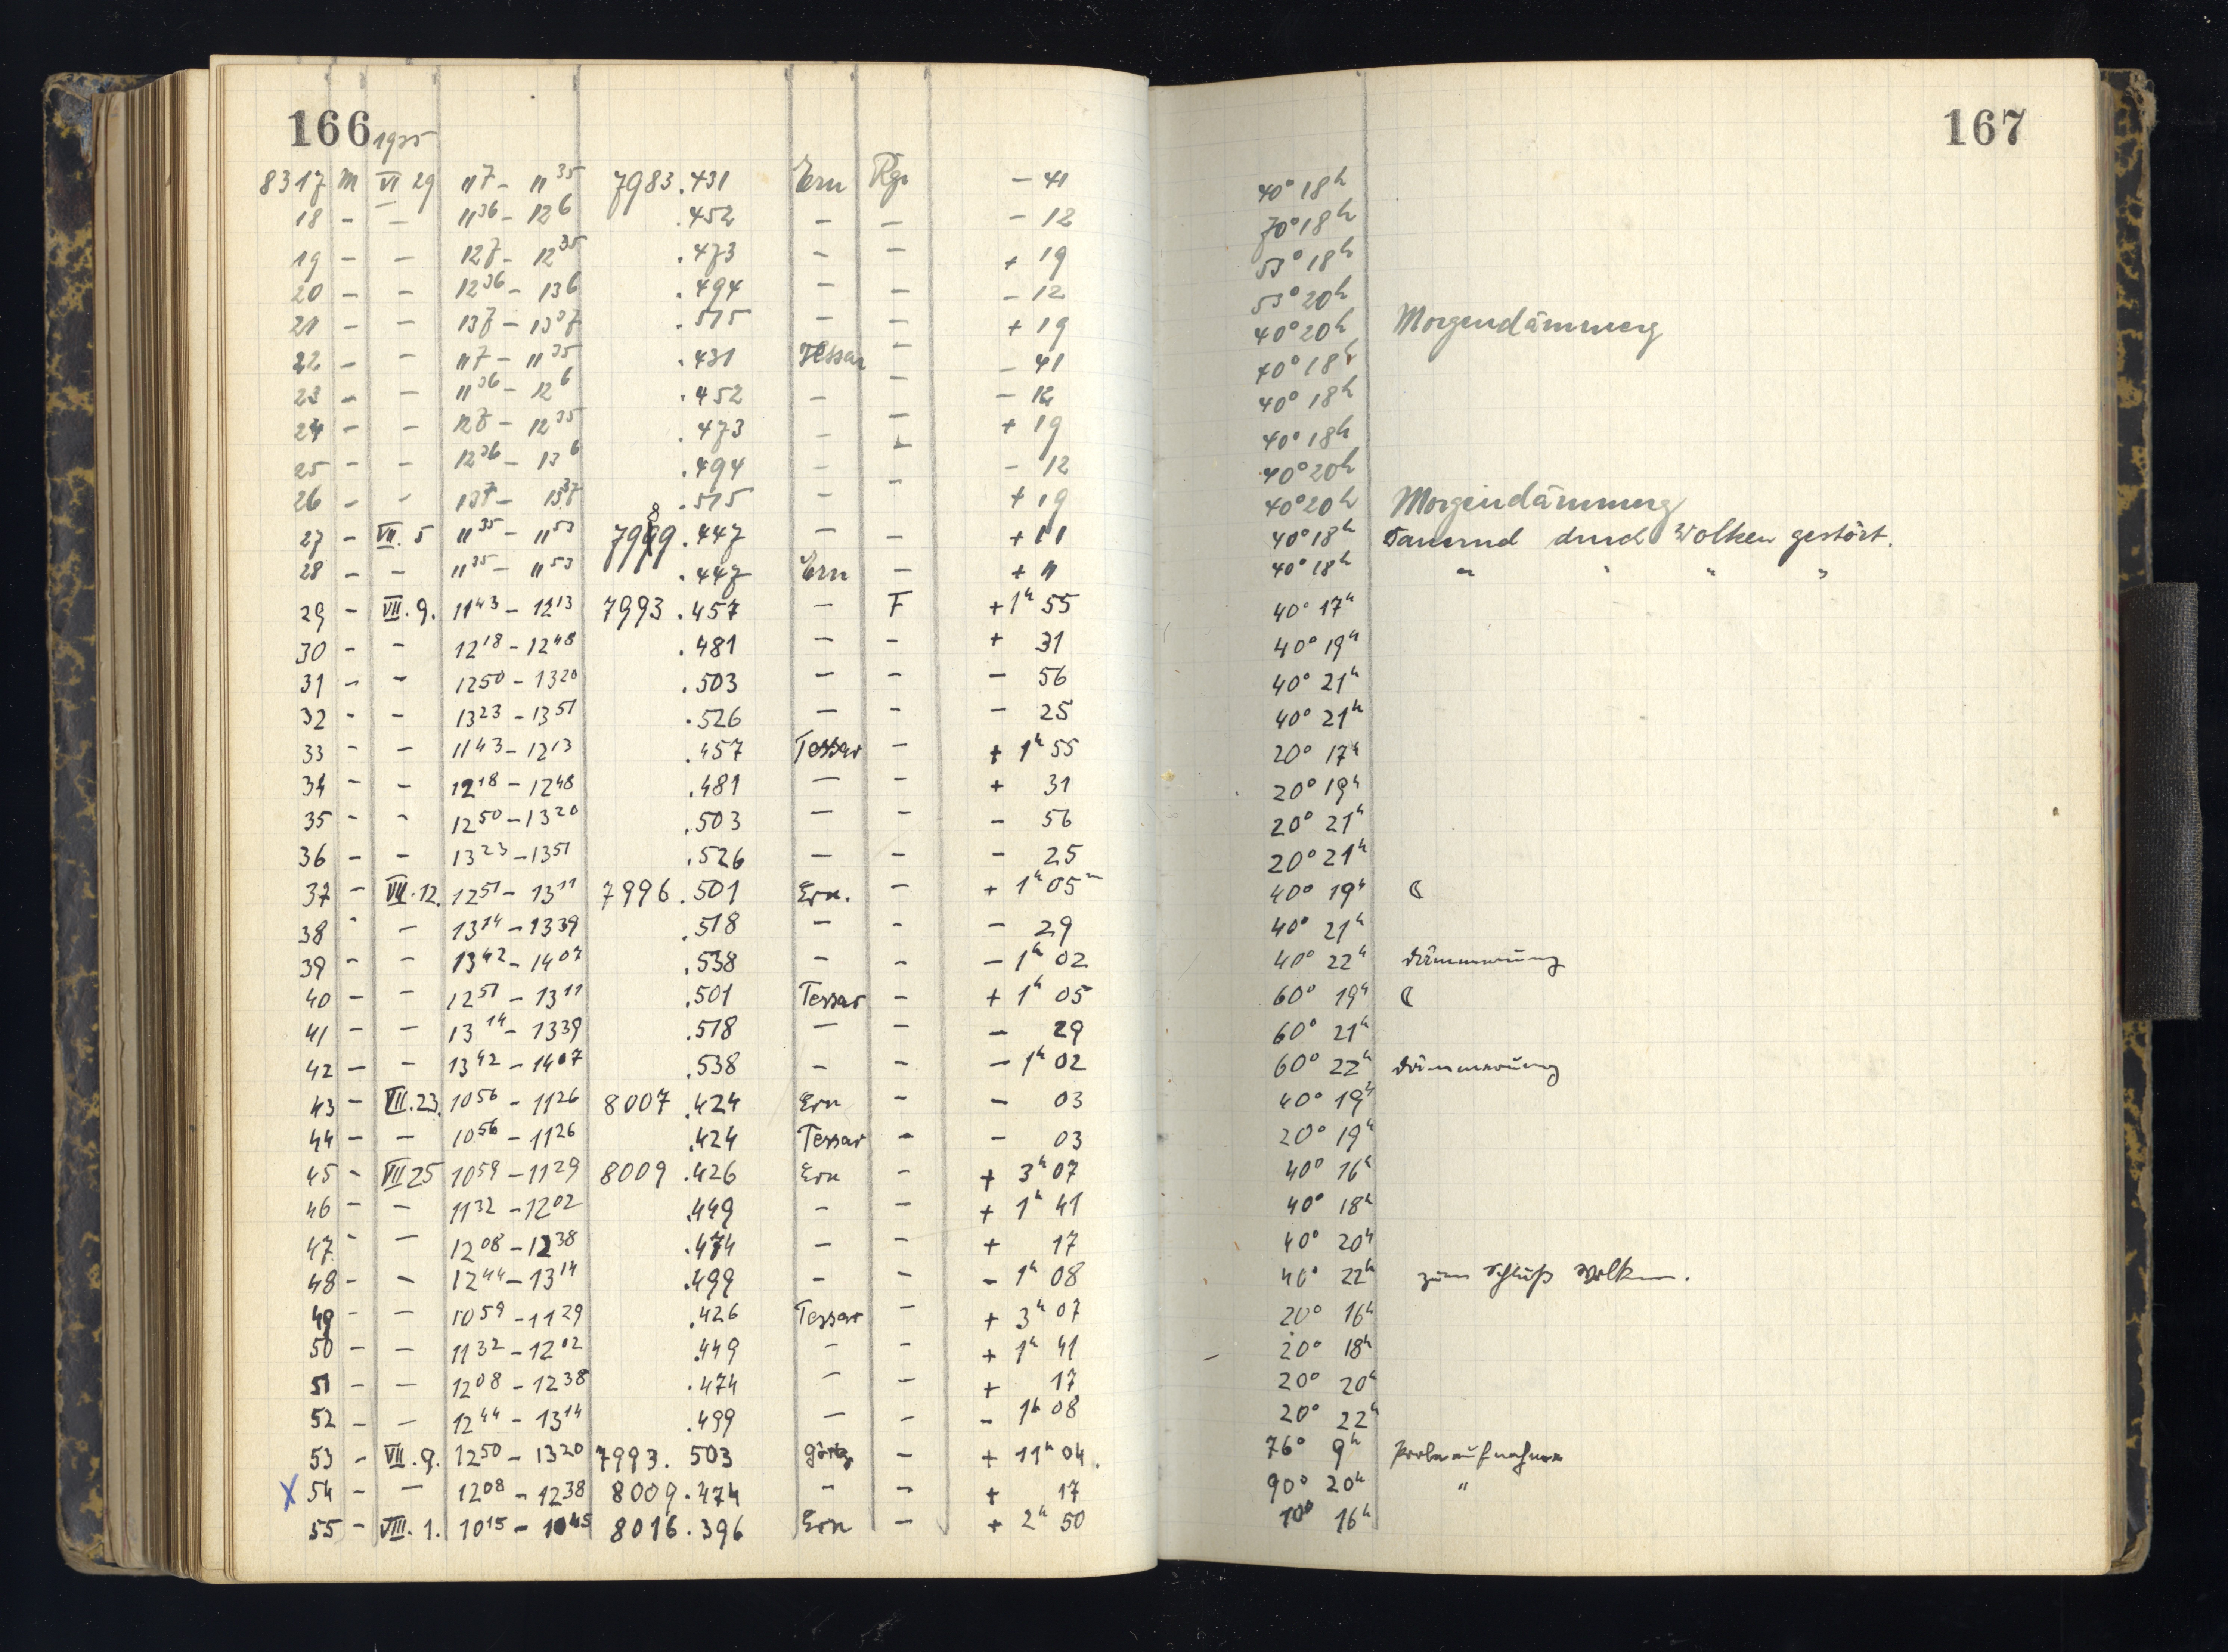 166 1935
167
8317 M VI 29 11 7 - 11 35 7983.431 Ern Rg. - 41 40° 18h
18 - - 11 36 - 12 6 .452 - - - 12 70° 18h
19 - - 12 7 - 12 35 .473 - - + 19 53° 18h
20 - - 12 36 - 13 6 .494 - - - 12 53° 20h
21 - - 13 7 - 13 37 .515 - - + 19 40° 20h Morgendämmerg
22 - - 11 7 - 11 35 .431 Tessar - - 41 40° 18h
23 - - 11 36 - 12 6 .452 - - - 12 40° 18h
24 - - 12 7 - 12 35 .473 - - + 19 40° 18h
25 - - 12 36 - 13 6 .494 - - - 12 40° 20h
26 - - 13 7 - 13 37 .515 - - + 19 40° 20h Morgendämmerg
27 - VII. 5 11 35 - 11 53 7989.447 - - + 11 40° 18h durch Wolken gestört.
28 - - 11 35 - 11 53 .447 Ern - + 11 40° 18h " " " "
29 - VII. 9. 11 43 - 12 13 7993.457 - F + 1h 55 40° 17h
30 - - 12 18 - 12 48 .481 - - + 31 40° 19h
31 - - 12 50 - 13 20 .503 - - - 56 40° 21h
32 - - 13 23 - 13 51 .526 - - - 25 40° 21h
33 - - 11 43 - 12 13 .457 Tessar - + 1h 55 20° 17h
34 - - 12 18 - 12 48 .481 - - + 31 20° 19h
35 - - 12 50 - 13 20 .503 - - - 56 20° 21h
36 - - 13 23 - 13 51 .526 - - - 25 20° 21h
37 - VII. 12. 12 51 - 13 11 7996.501 Ern. - + 1h 05m 40° 19h ☾
38 - - 13 14 - 13 39 .518 - - - 29 40° 21h
39 - - 13 42 - 14 07 .538 - - - 1h 02 40° 22h Dämmerung
40 - - 12 51 - 13 11 .501 Tessar - + 1h 05 60° 19h ☾
41 - - 13 14 - 13 39 .518 - - - 29 60° 21h
42 - - 13 42 - 14 07 .538 - - - 1h 02 60° 22h Dämmerung
43 - VII. 23. 10 56 - 11 26 8007.424 Ern - - 03 40° 19h
44 - - 10 56 - 11 26 .424 Tessar - - 03 20° 19h
45 - VII 25 10 59 - 11 29 8009.426 Ern - + 3h 07 40° 16h
46 - - 11 32 - 12 02 .449 - - + 1h 41 40° 18h
47 - - 12 08 - 12 38 .474 - - + 17 40° 20h
48 - - 12 44 - 13 14 .499 - - - 1h 08 40° 22h zum Schluß Wolken.
49 - - 10 59 - 11 29 .426 Tessar - + 3h 07 20° 16h
50 - - 11 32 - 12 02 .449 - - + 1h 41 20° 18h
51 - - 12 08 - 12 38 .474 - - + 17 20° 20h
52 - - 12 44 - 13 14 .499 - - - 1h 08 20° 22h
53 - VII. 9. 12 50 - 13 20 7993.503 - + 11h 04. 76° 9h Probeaufnahme
X 54 - - 12 08 - 12 38 8009.474 - - + 17 90° 20h "
55 - VIII. 1. 10 15 - 10 45 8016.396 Ern - + 2h 50 10° 16h